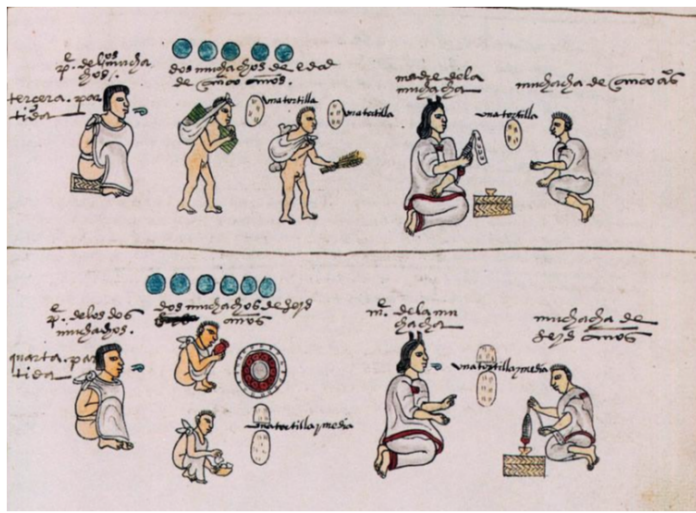 p̄. de los mucha
chos/.
dos muchachos de edad
de cinco años.
tercera. par
tida
una tortilla
una tortilla
madre de la
muchacha
una tortilla
muchacha de cinco aºs
p̄. de los dos
muchachos.
quarta. par
tida
dos muchachos de seys
años
una tortilla y media
m̄. de la mu
chacha
una tortilla y media
muchacha de
seys años